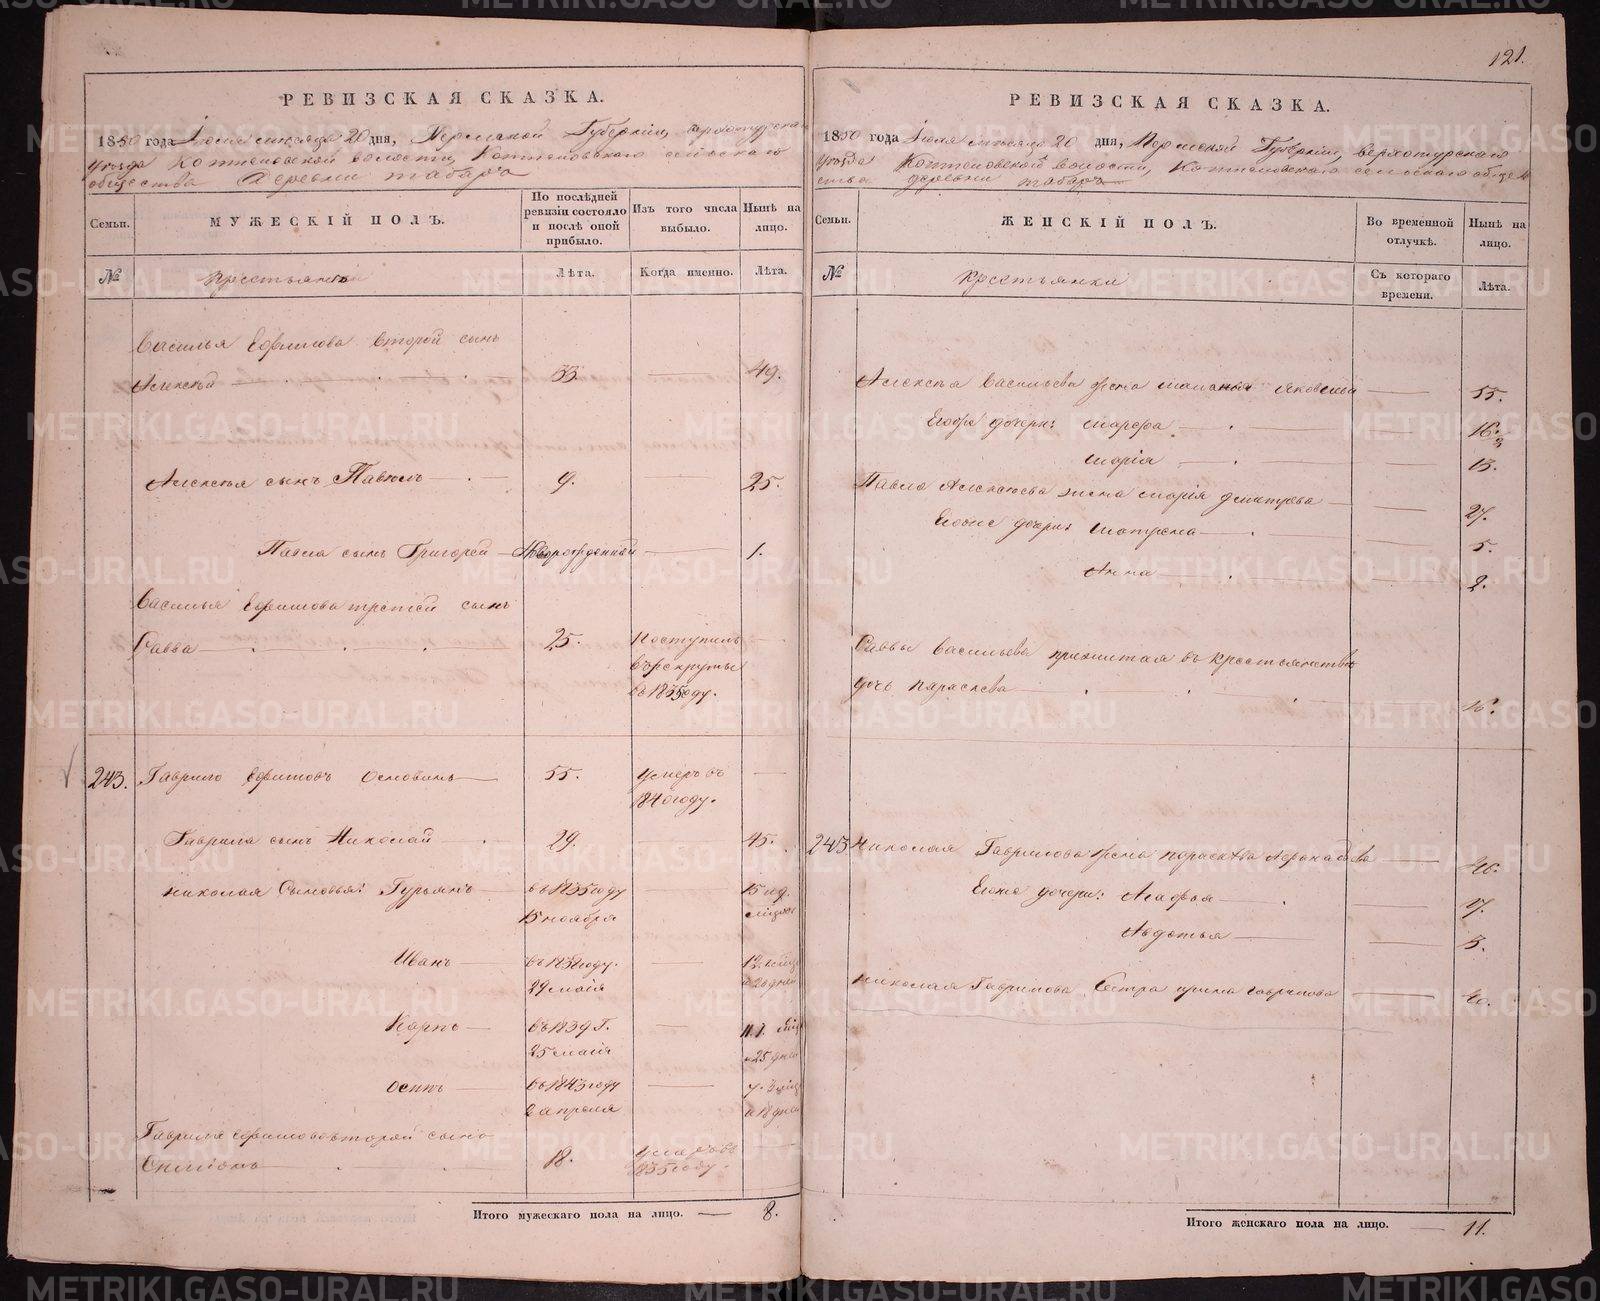 121.
РЕВИЗСКАЯ СКАЗКА.
1850 года Іюня месяца 20 дня, Пермской Губерніи, Верхотурскаго
Уезда Коптеловской волости, Коптеловскаго сельскаго
общества Деревни Табаръ
Семьи.
МУЖЕСКІЙ ПОЛЪ.
По послѣдней ревизіи состояло и послѣ оной прибыло.
Изъ того числа выбыло.
Нынѣ на лицо.
№
Крестьяне
Лѣта.
Когда именно.
Лѣта.
Василья Ефимова второй сынъ
Алексѣй 33 49.
Алексѣя сынъ Павелъ 9. 25.
Павла сынъ Григорей Новорожденный 1.
Василья Ефимова третей сынъ
Савва 25. Поступилъ
въ рекруты
въ 1835 году.
243. Гаврило Ефимовъ Основинъ 55. умеръ въ
1840 году.
Гаврила сынъ Николай 29. 45.
Николая Сыновья: Гурьянъ въ 1835 году
15 ноября
Иванъ въ 1838 году.
29 маія
Карпъ въ 1839 г.
25 маія
Осипъ въ 1843 году
2 апреля
Гаврила Ефимова второй сынъ
18. умеръ въ
1835 году.
Итого мужескаго пола на лицо. 8.
РЕВИЗСКАЯ СКАЗКА.
1850 года Іюня месяца 20 дня, Пермской Губерніи, Верхотурскаго
Уезда Коптеловской волости, Коптеловскаго сельскаго обще
ства деревни Табаръ
Семьи.
ЖЕНСКІЙ ПОЛЪ.
Во временной отлучкѣ.
Нынѣ на лицо.
№
Крестьянки
Съ котораго времени.
Лѣта.
Алексѣя Васильева жена Маланья Яковлева 55.
Егоже дочери: Марфа 16.
Марія 13.
Павла Алексѣева жена Марія Дмитрева 27.
Егоже дочери: Матрена 5.
Анна 2.
Саввы Васильева прижитая въ крестьянстве
дочь Параскева 16.
243 Николая Гаврилова жена Параскева
Егоже дочери: Агафья 17.
Авдотья 3.
Николая Гаврилова Сестра Гаврилова
Итого женскаго пола на лицо. 11.
METRIKI.GASO-URAL.RU